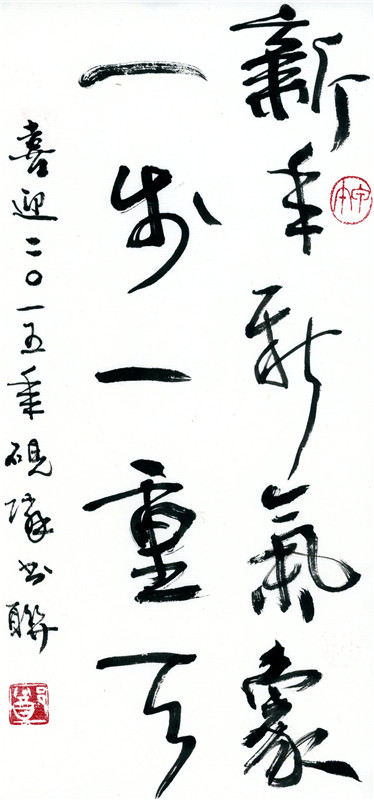 新年新氣象
一步一重天
喜迎二〇一五年硯隊书聯